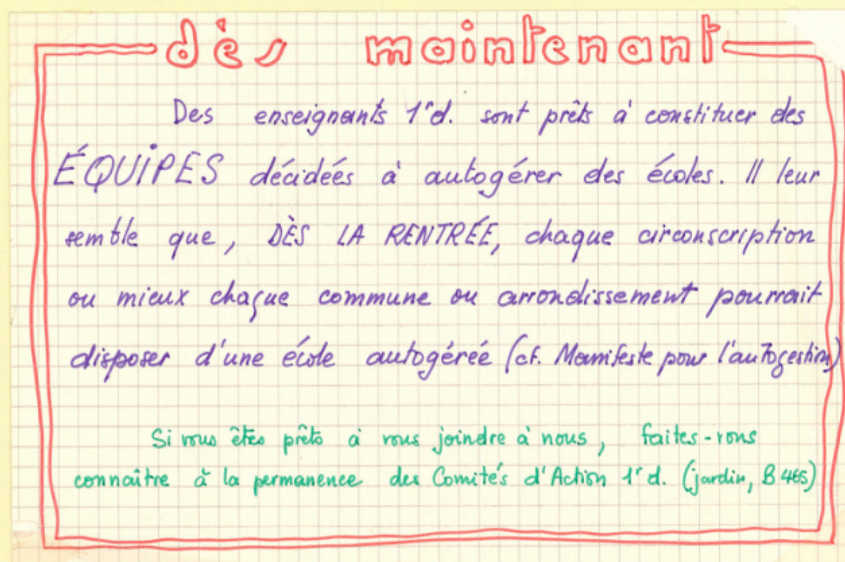 dès maintenant
Des enseignants 1er d. sont prêts à constituer des
ÉQUIPES décidées à autogérer des écoles. Il leur
semble que, DÈS LA RENTRÉE, chaque circonscription
ou mieux chaque commune ou arrondissement pourrait
disposer d'une école autogérée (cf. Manifeste pour l'autogestion)
Si vous êtes prêts à vous joindre à nous, faites-vous
connaître à la permanence des Comités d'Action 1er d. (jardin, B 465)